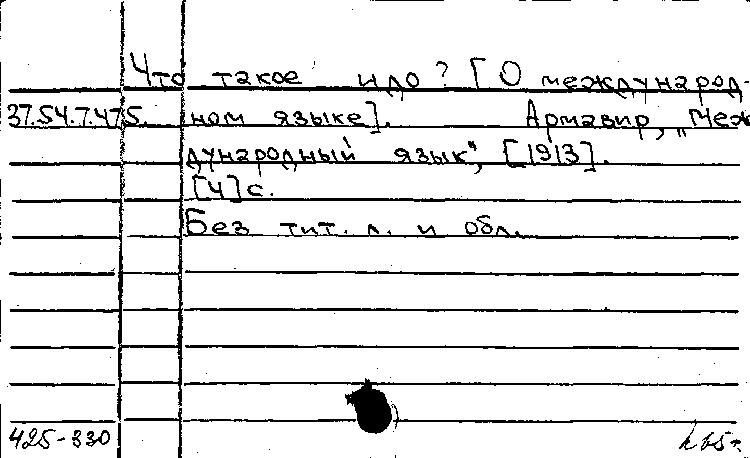 Что такое идо? [О международ-
37.54.7.475. ном языке]. Армавир, „Меж
дународный язык", [1913].
[4]с.
Без тит. л. и обл.
425-330